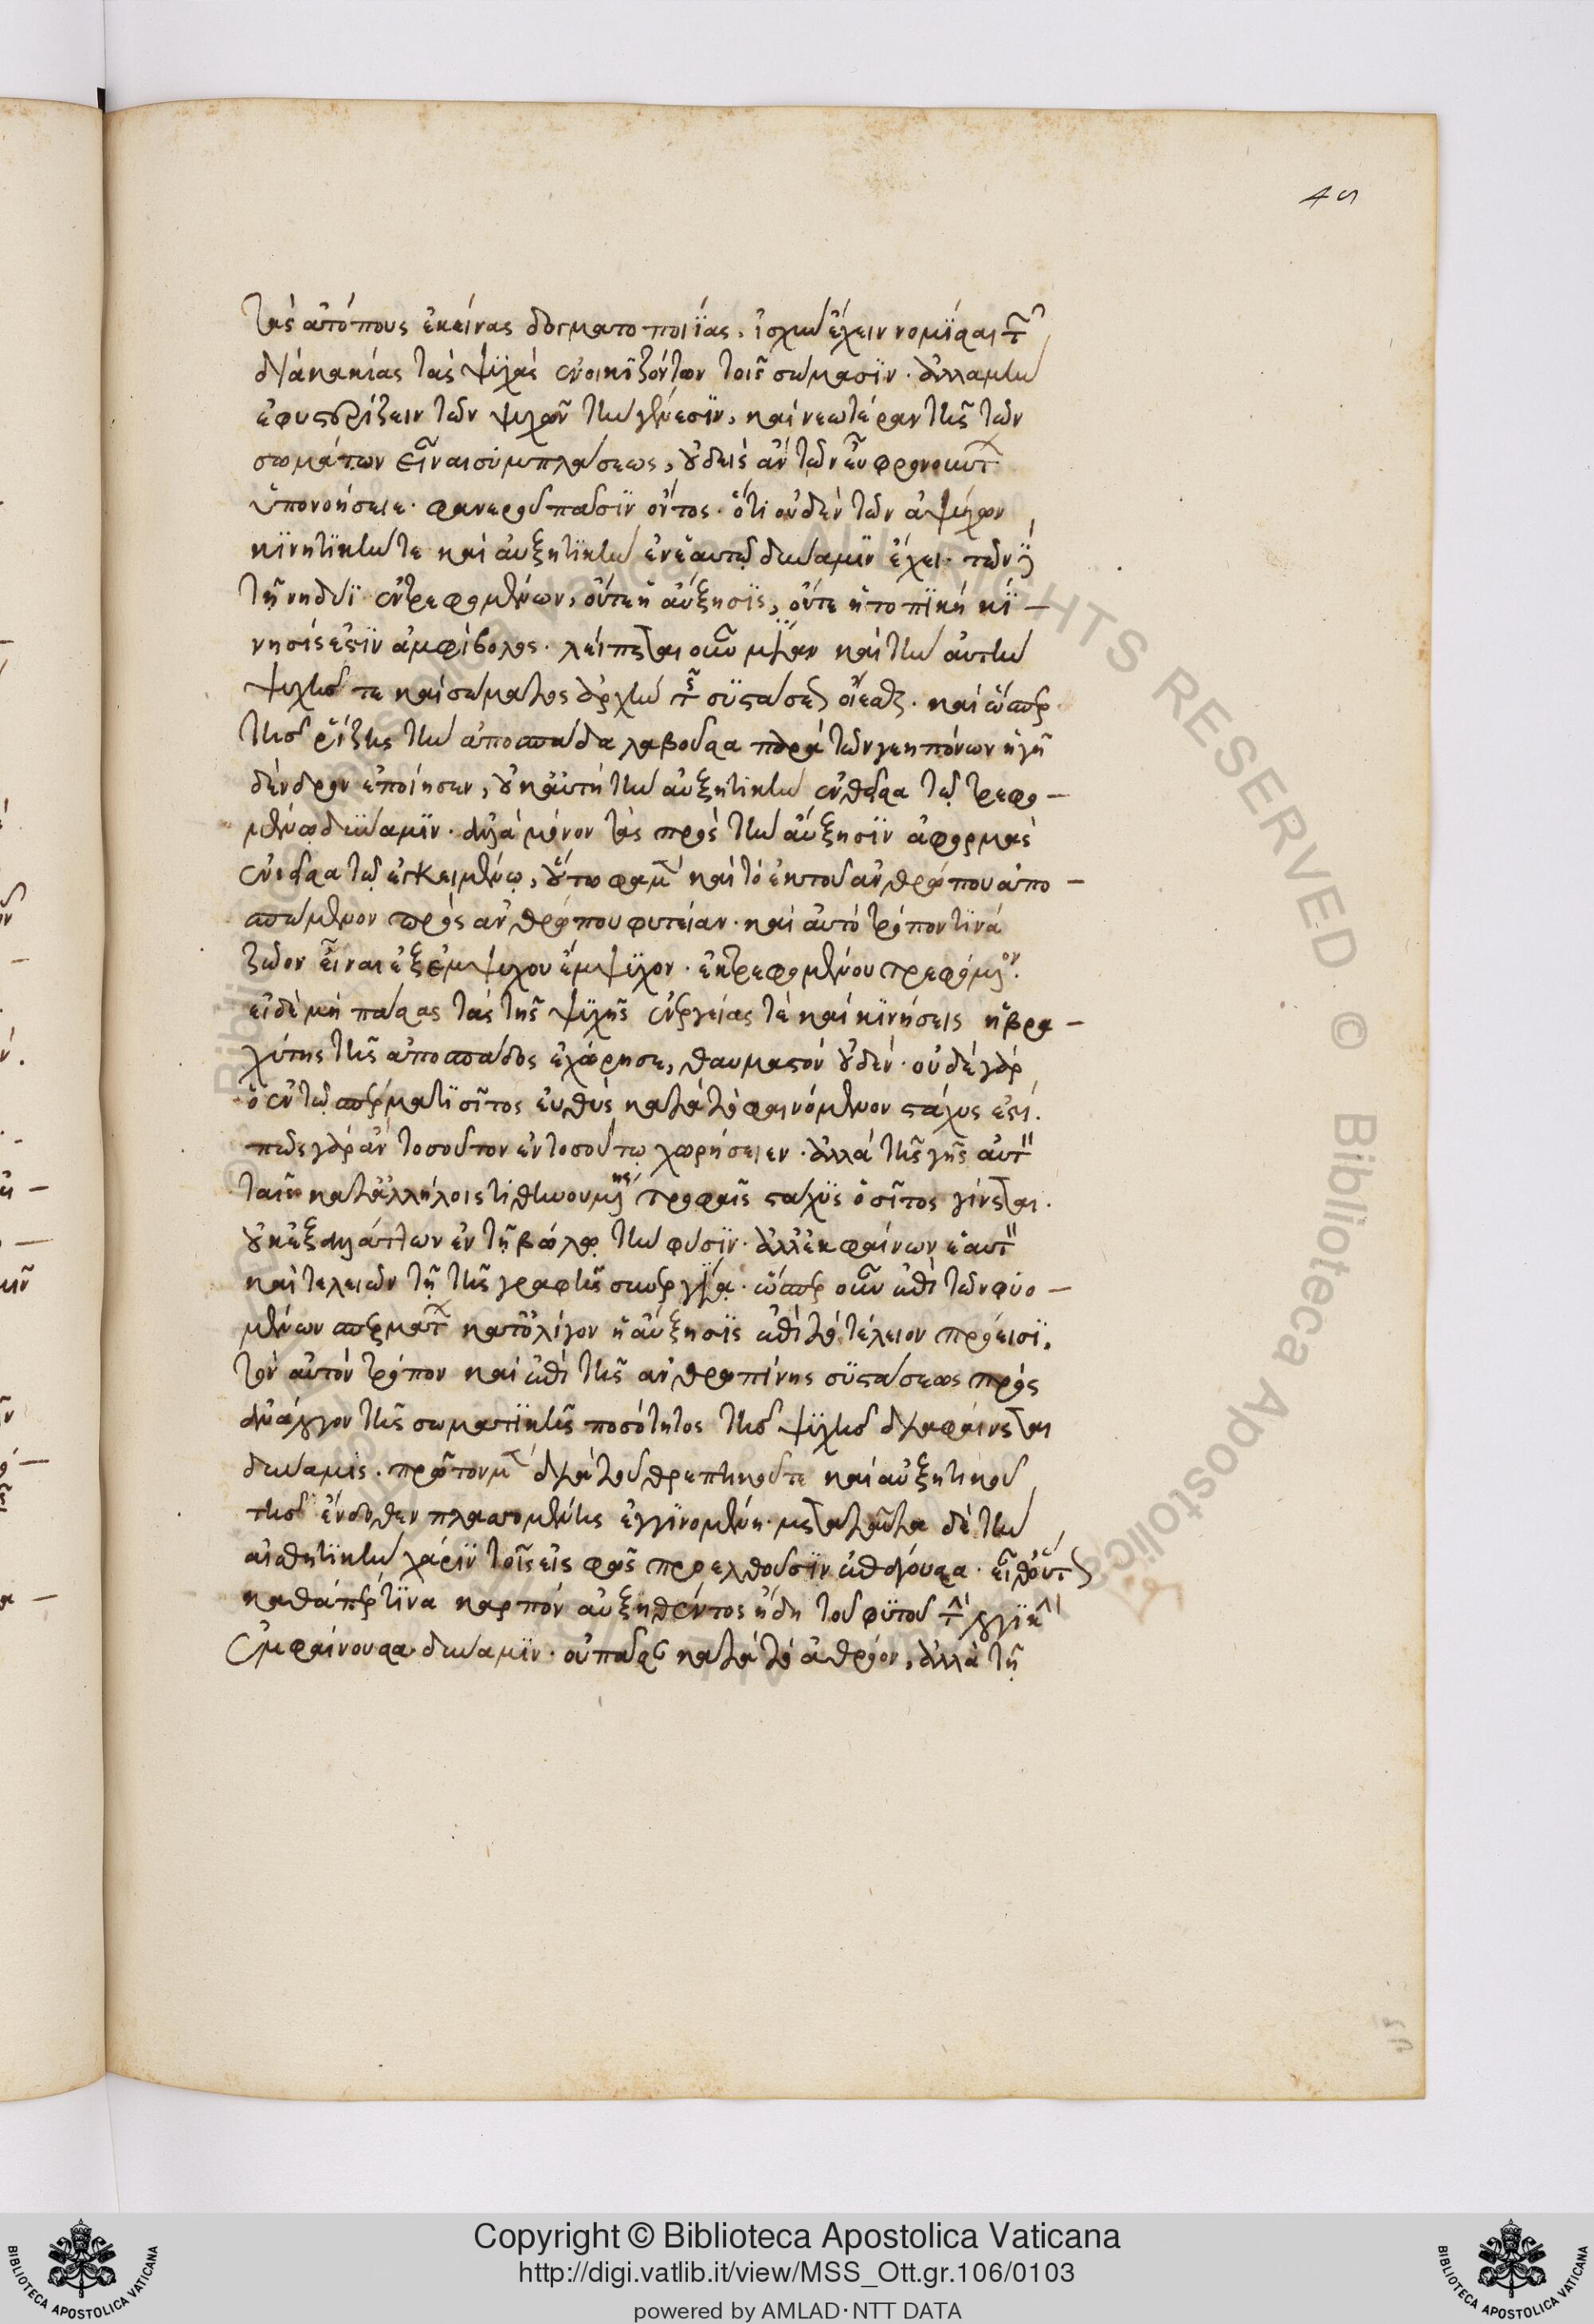 45
τὰς ἀτόπους ἐκείνας δογματοποιΐας, ἰσχὺν ἔχειν νομίσαι τ
διὰ κακίας τὰς ψυχὰς ἐνοικιζόντων τοῖς σώμασϊν. ἀλλὰ μὴν
ἐφυστερίζειν τῶν ψυχῶν τὴν γένεσϊν, καὶ νεωτέραν τῆς τῶν
σωμάτων εἶναι συμπλάσεως, οὐδεὶς ἂν τῶν εὖ φρονούντ
ὑπονοήσειε. φανεροῦ πᾶσϊν ὄντος. ὅτι οὐδὲν τῶν ἀψύχων
κϊνητϊκήν τε καὶ αὐξητϊκὴν ἐν ἑαυτῷ δύναμϊν ἔχει. τῶν δὲ
τῇ νηδύϊ ἐντρεφομένων, οὔτε ἡ αὔξησϊς, οὔτε ἡ τοπϊκὴ κϊ-
νησίς ἐστϊν ἀμφίβολος. λείπεται οὖν μίαν καὶ τὴν αὐτὴν
ψυχῆς τε καὶ σώματος ἀρχὴν τῆς συστάσεως οἴεσθαι. καὶ ὥσπερ
τῆς ῥίζης τὴν ἀποσπάδα λαβοῦσα παρὰ τῶν γεηπόνων ἡ γῆ
δένδρον ἐποίησεν, οὐκ αὐτὴ τὴν αὐξητικὴν ἐνθεῖσα τῷ τρεφο-
μένῳ δύναμϊν. ἀλλὰ μόνον τὰς πρὸς τὴν αὔξησϊν ἀφορμὰς
ἐνεῖσα τῷ ἐγκειμένῳ, οὕτω φαμὲν καὶ τὸ ἐκ τοῦ ἀνθρώπου ἀπο-
σπώμενον πρὸς ἀνθρώπου φυτείαν. καὶ αὐτὸ τρόπον τϊνὰ
ζῶον εἶναι ἐξ ἐμψύχου ἔμψυχον. ἐκτρεφομένου τρεφόμενον.
εἰ δὲ μὴ πάσας τὰς τῆς ψυχῆς ἐνεργείας τὲ καὶ κϊνήσεις ἡ βρα-
χύτης τῆς ἀποσπάδος ἐχώρησε, θαυμαστὸν οὐδέν. οὐδὲ γὰρ
ὁ ἐν τῷ σπέρματϊ σῖτος εὐθὺς κατὰ τὸ φαινόμενον στάχυς ἐστί.
πῶς γὰρ ἂν τοσοῦτον ἐν τοσούτῳ χωρήσειεν. ἀλλὰ τῆς γῆς αὐτ
ταῖς καταλλήλοις τιθηνουμένης τροφαῖς στάχυς ὁ σῖτος γίνεται.
οὐκ ἐξαλλάττων ἐν τῇ βώλῳ τὴν φύσϊν. ἀλλ᾽ ἐκφαίνων ἑαυτ
καὶ τελειῶν τῇ τῆς τροφῆς συνεργΐᾳ. ὥσπερ οὖν ἐπὶ τῶν φυο-
μένων σπερμάτ κατ᾽ ὀλίγον ἡ αὔξησϊς ἐπὶ τὸ τέλειον πρόεισϊ,
τὸν αὐτὸν τρόπον καὶ ἐπὶ τῆς ἀνθρωπίνης συστάσεως πρὸς
ἀνάλογον τῆς σωματϊκῆς ποσότητος τῆς ψυχῆς διαφαίνεται
δύναμϊς. πρῶτον μὲν διὰ τοῦ θρεπτικοῦ τε καὶ αὐξητικοῦ
τοῖς ἔνδοθεν πλασσομένοις ἐγγϊνομένη. μετὰ ταῦτα δὲ τὴν
αἰσθητϊκὴν χάρϊν τοῖς εἰς φῶς προελθοῦσϊν ἐπάγουσα. εἶθ᾽ οὕτως
καθάπερ τϊνὰ καρπὸν αὐξηθέντος ἤδη τοῦ φυτοῦ τ λογϊκ
ἐμφαίνουσα δύναμϊν. οὐ πᾶσαν κατὰ τὸ ἀθρόον, ἀλλὰ τῇ
Copyright © Biblioteca Apostolica Vaticana
http://digi.vatlib.it/view/MSS_Ott.gr.106/0103
powered by AMLAD·NTT DATA